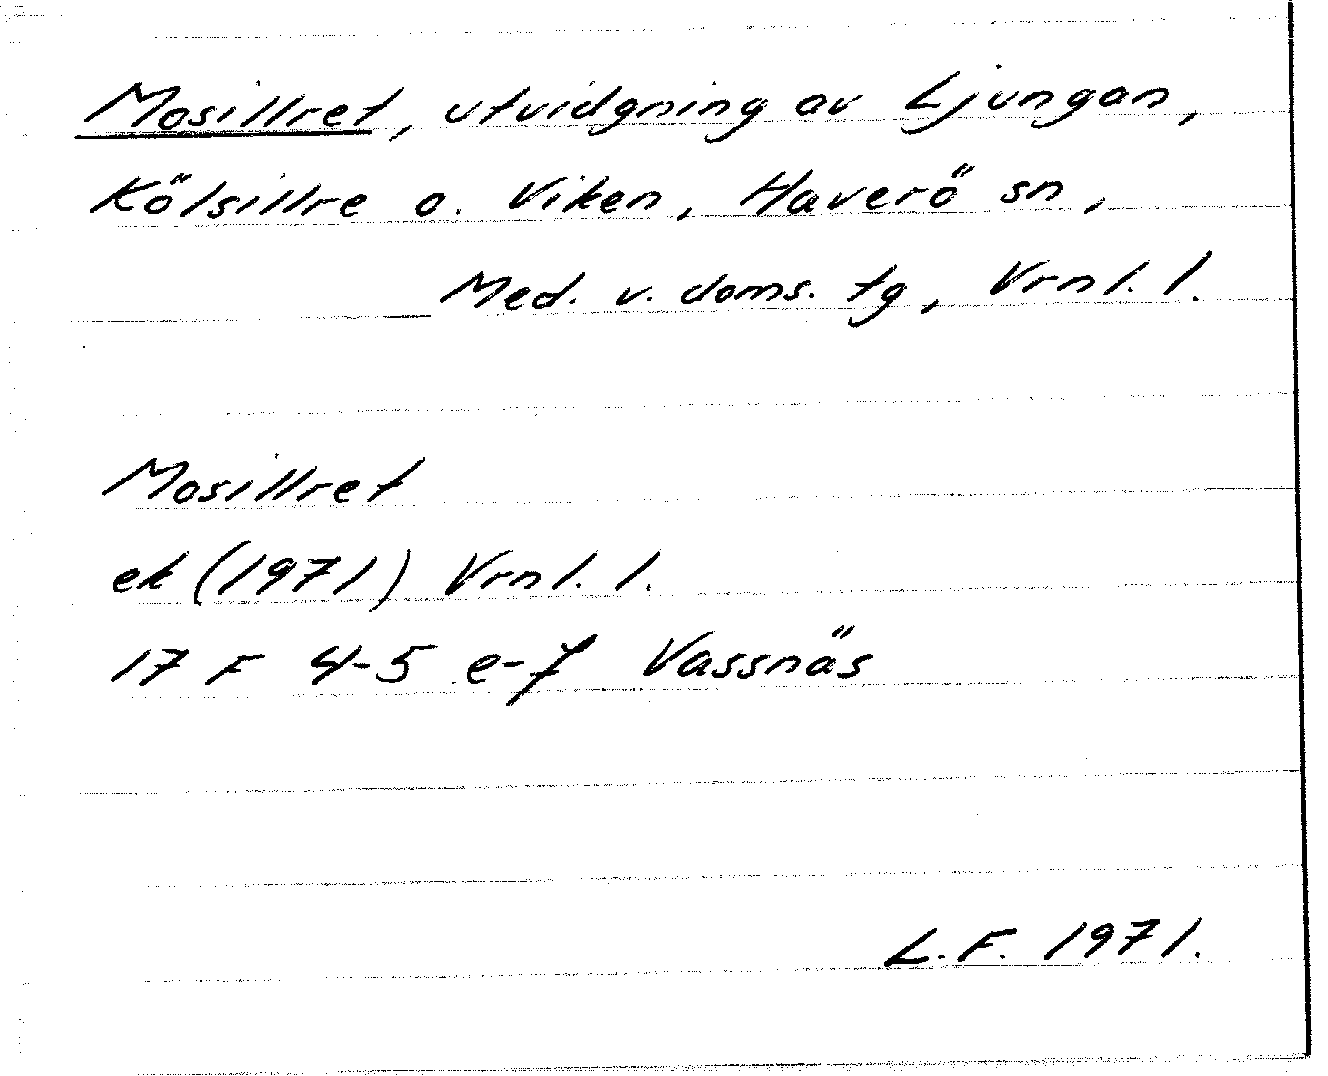 Mosillret, utvidgning av Ljungan,
Kölsillre o. Viken, Haverö sn,
Med. v. doms. tg, Vrnl. l.
Mosillret
ek (1971) Vrnl. l.
17 F 4-5 e-f Vassnäs
L.F. 1971.